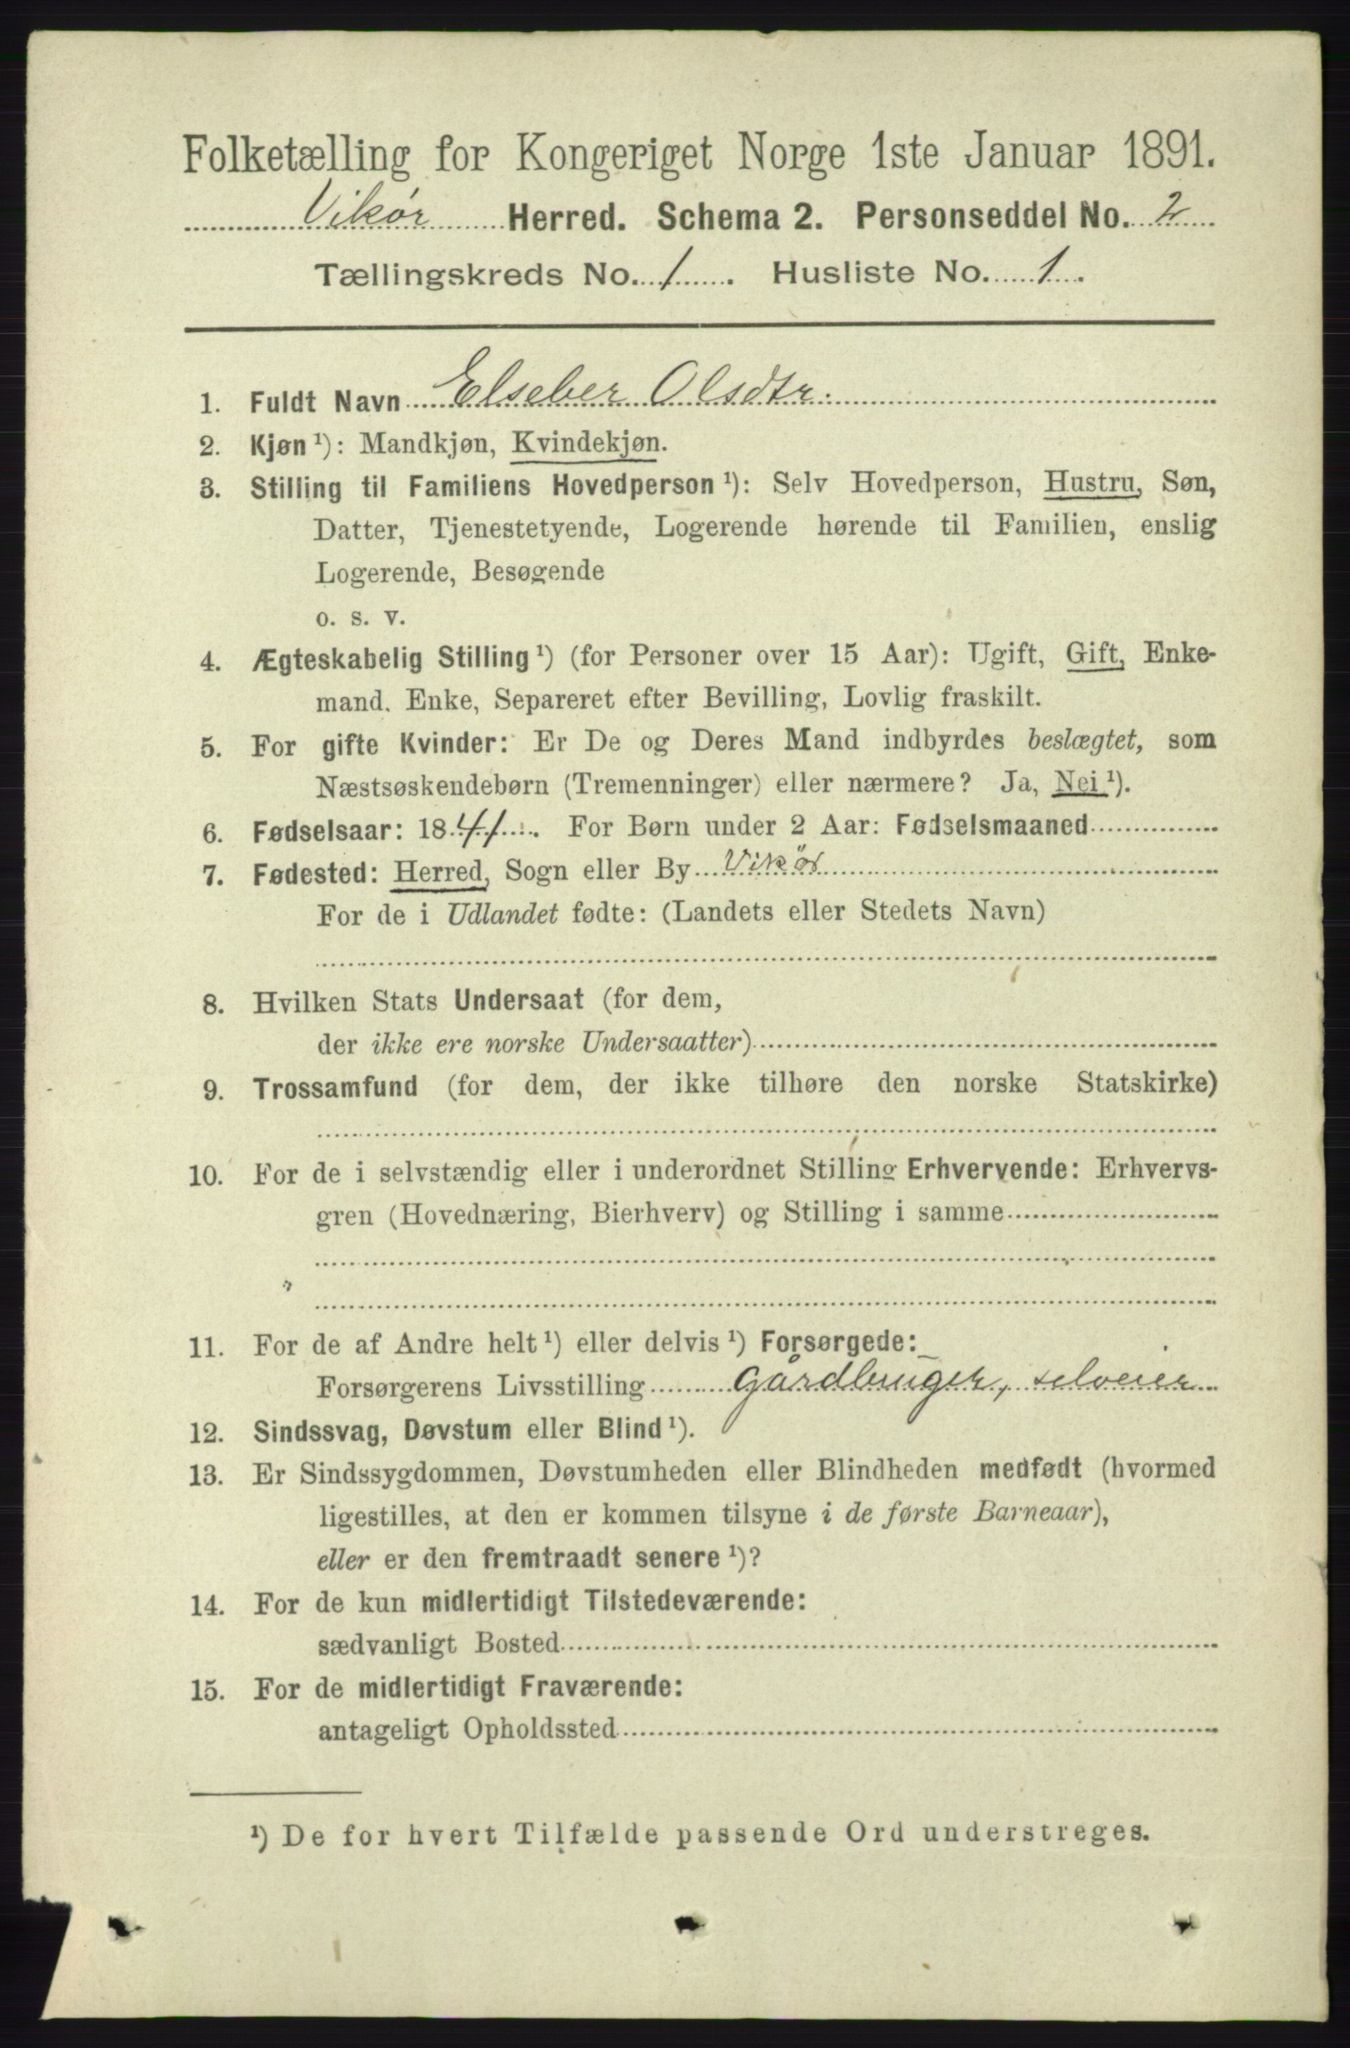 Folketælling for Kongeriget Norge 1ste Januar 1891.
Vikør Herred. Schema 2. Personseddel No. 2
Tællingskreds No. 1. Husliste No. 1.
1. Fuldt Navn Elseber Olsdtr.
2. Kjøn ¹): Mandkjøn, Kvindekjøn.
3. Stilling til Familiens Hovedperson ¹): Selv Hovedperson, Hustru, Søn,
Datter, Tjenestetyende, Logerende hørende til Familien, enslig
Logerende, Besøgende
o. s. v.
4. Ægteskabelig Stilling ¹) (for Personer over 15 Aar): Ugift, Gift, Enke-
mand, Enke, Separeret efter Bevilling, Lovlig fraskilt.
5. For gifte Kvinder: Er De og Deres Mand indbyrdes beslægtet, som
Næstsøskendebørn (Tremenninger) eller nærmere? Ja, Nei ¹).
6. Fødselsaar: 1841. For Børn under 2 Aar: Fødselsmaaned
7. Fødested: Herred, Sogn eller By Vikör
For de i Udlandet fødte: (Landets eller Stedets Navn)
8. Hvilken Stats Undersaat (for dem,
der ikke ere norske Undersaatter)
9. Trossamfund (for dem, der ikke tilhøre den norske Statskirke)
10. For de i selvstændig eller i underordnet Stilling Erhvervende: Erhvervs-
gren (Hovednæring, Bierhverv) og Stilling i samme
11. For de af Andre helt ¹) eller delvis ¹) Forsørgede:
Forsørgerens Livsstilling Gårdbruger, selveier
12. Sindssvag, Døvstum eller Blind ¹).
13. Er Sindssygdommen, Døvstumheden eller Blindheden medfødt (hvormed
ligestilles, at den er kommen tilsyne i de første Barneaar),
eller er den fremtraadt senere ¹)?
14. For de kun midlertidigt Tilstedeværende:
sædvanligt Bosted
15. For de midlertidigt Fraværende:
antageligt Opholdssted
¹) De for hvert Tilfælde passende Ord understreges.